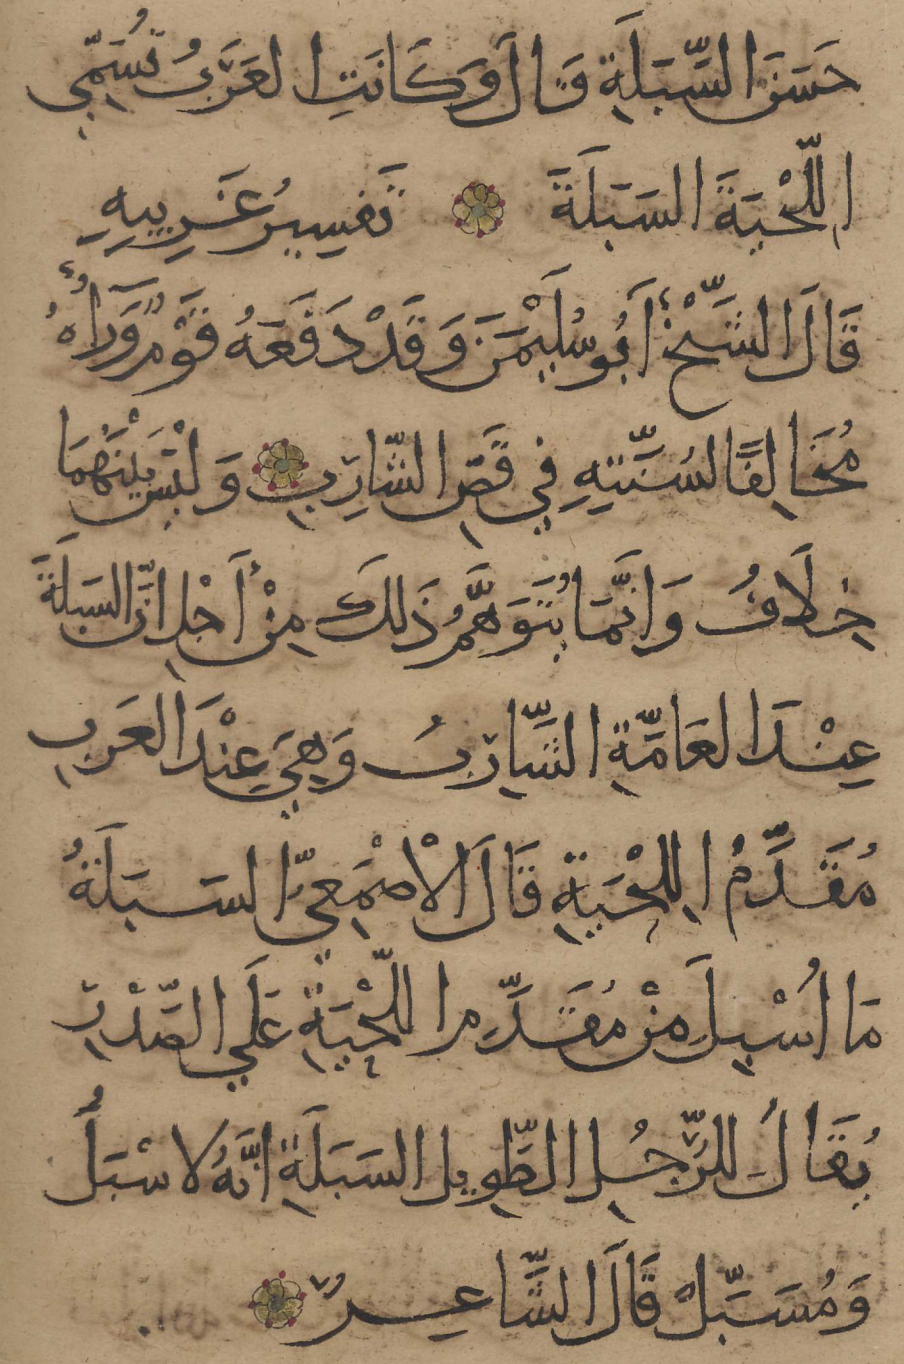 حَسَنَ السَّبَلَةِ قَالَ وَكَانَتِ العَرَبُ تُسَمِّي
اللِّحْيَةَ السَبَلَةَ تَفسِيرُ غَرِيبِهِ
قَالَ الشَّيْخُ أَبُو سُلَيْمٰنَ وَقَدْ دَفَعَهُ قَوْمٌ وَرَأَوْهُ
مُخَالِفًا لسُنَّتِهِ فِي قَصِّ الشَّارِبِ وَلَيْسَ بَيْنَهُمَا
خِلَافُ وَانَّمَا يُتَوَهَّمُ ذَلكَ مِنْ أَجْلِ انَّ السَبَلَةَ
عِنْدَ العَامَّةِ الشَّارِبُ وَهِيَ عِنْدَ العَرَبِ
مُقَدَّمُ اللِّحْيَةِ قَالَ الْاصْمَعِيُّ السَبَلَةُ
مَا اُسْبِلَ مِنْ مُقَدَّمِ اللِّحْيَةِ عَلَي الصَّدْرِ
يُقَالُ للرَّجُلِ الطَّوِيلِ السَبَلَةِ انَّهُ لَاسْبَلُ
وَمُسَبَّلٌ قَالَ الشَّاعِرُ